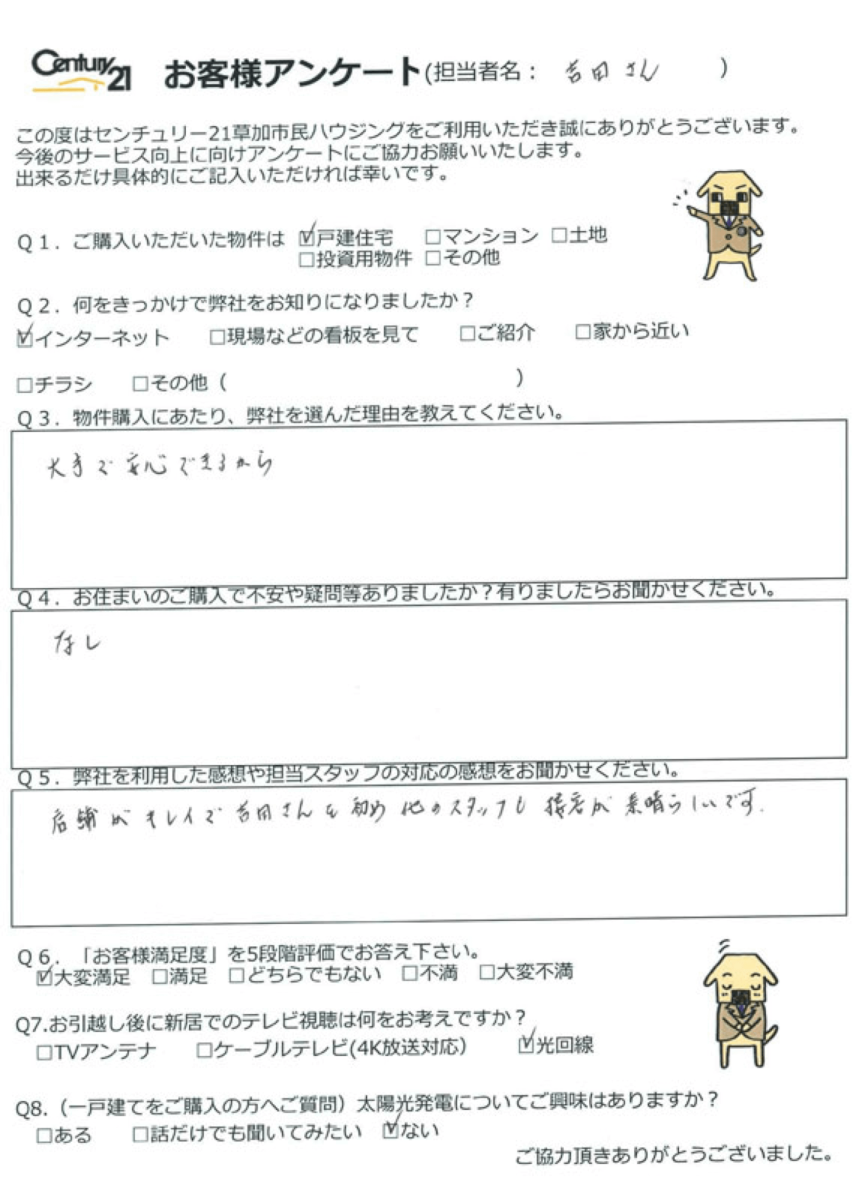 Century 21 お客様アンケート(担当者名： 吉田さん )
この度はセンチュリー21草加市民ハウジングをご利用いただき誠にありがとうございます。
今後のサービス向上に向けアンケートにご協力お願いいたします。
出来るだけ具体的にご記入いただければ幸いです。
Ｑ１．ご購入いただいた物件は ☑戸建住宅 □マンション □土地
□投資用物件 □その他
Ｑ２．何をきっかけで弊社をお知りになりましたか？
☑インターネット □現場などの看板を見て □ご紹介 □家から近い
□チラシ □その他（ ）
Ｑ３．物件購入にあたり、弊社を選んだ理由を教えてください。
大手で安心できるから
Ｑ４．お住まいのご購入で不安や疑問等ありましたか？有りましたらお聞かせください。
なし
Ｑ５．弊社を利用した感想や担当スタッフの対応の感想をお聞かせください。
店舗がキレイで吉田さんを初め他のスタッフも接客が素晴らしいです.
Ｑ６．「お客様満足度」を5段階評価でお答え下さい。
☑大変満足 □満足 □どちらでもない □不満 □大変不満
Q7.お引越し後に新居でのテレビ視聴は何をお考えですか？
□TVアンテナ □ケーブルテレビ(4K放送対応） ☑光回線
Q8.（一戸建てをご購入の方へご質問）太陽光発電についてご興味はありますか？
□ある □話だけでも聞いてみたい ☑ない
ご協力頂きありがとうございました。